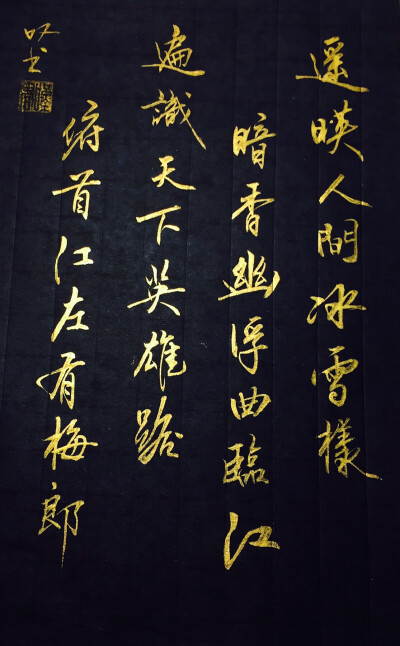 遥暎人間冰雪樣
暗香幽浮曲臨江
遍識天下英雄路
俯首江左有梅郎